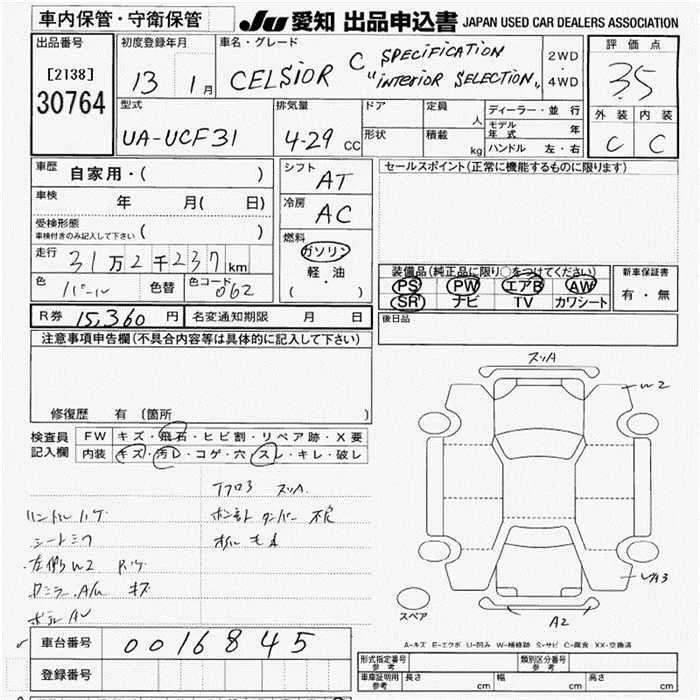 車内保管・守衛保管
JU 愛知 出品申込書 JAPAN USED CAR DEALERS ASSOCIATION
出品番号
[2138]
30764
初度登録年月
13 1月
車名・グレード
CELSIOR C SPECIFICATION
"INTERIOR SELECTION"
2WD
・
4WD
評価点
3.5
外装 内装
C C
型式
UA-UCF31
排気量
4-29 CC
ドア
形状
定員 人
積載 kg
ディーラー・並行
モデル年式 年
ハンドル 左・右
車歴 自家用・( )
車検 年 月( 日)
受検形態
車検付きのみ記入して下さい ( )
走行 31万2千237km
色 パール 色替 色コード 062
シフト AT
冷房 AC
燃料
ガソリン
軽・油
( )
セールスポイント(正常に機能するものに限ります)
装備品(純正品に限り○をつけてください)
PS PW エアB AW
SR ナビ TV カワシート
新車保証書
有・無
R券 15,360円 名変通知期限 月 日
後日品
注意事項申告欄(不具合内容等は具体的に記入して下さい)
修復歴 有 [箇所 ]
検査員
記入欄
FW キズ・飛石・ヒビ割・リペア跡・X要
内装 キズ・汚レ・コゲ・穴・スレ・キレ・破レ
スリA
W2
ハンドルハゲ
ボンネットダンパー不良
左側W2
A2
スペア
A-キズ E-エクボ U-凹み W-補修跡 S-サビ C-腐食 XX-交換済
車台番号 0016845
登録番号
形式指定番号
参考
類別区分番号
参考
車庫証明用
参考
長さ cm 幅 cm 高さ cm